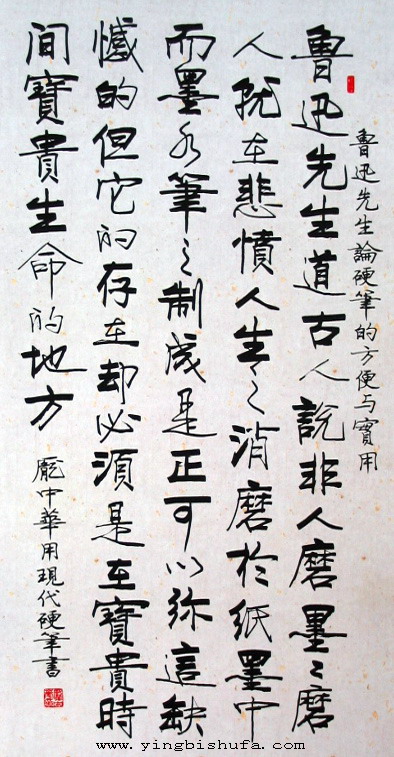 魯迅先生論硬筆的方便与實用
魯迅先生道古人說非人磨墨墨磨
人就在悲憤人生之消磨於紙墨中
而墨水筆之制成是正可以弥這缺
憾的但它的存在却必須是在寶貴時
间寶貴生命的地方
龐中華用現代硬筆書
www.yingbishufa.com